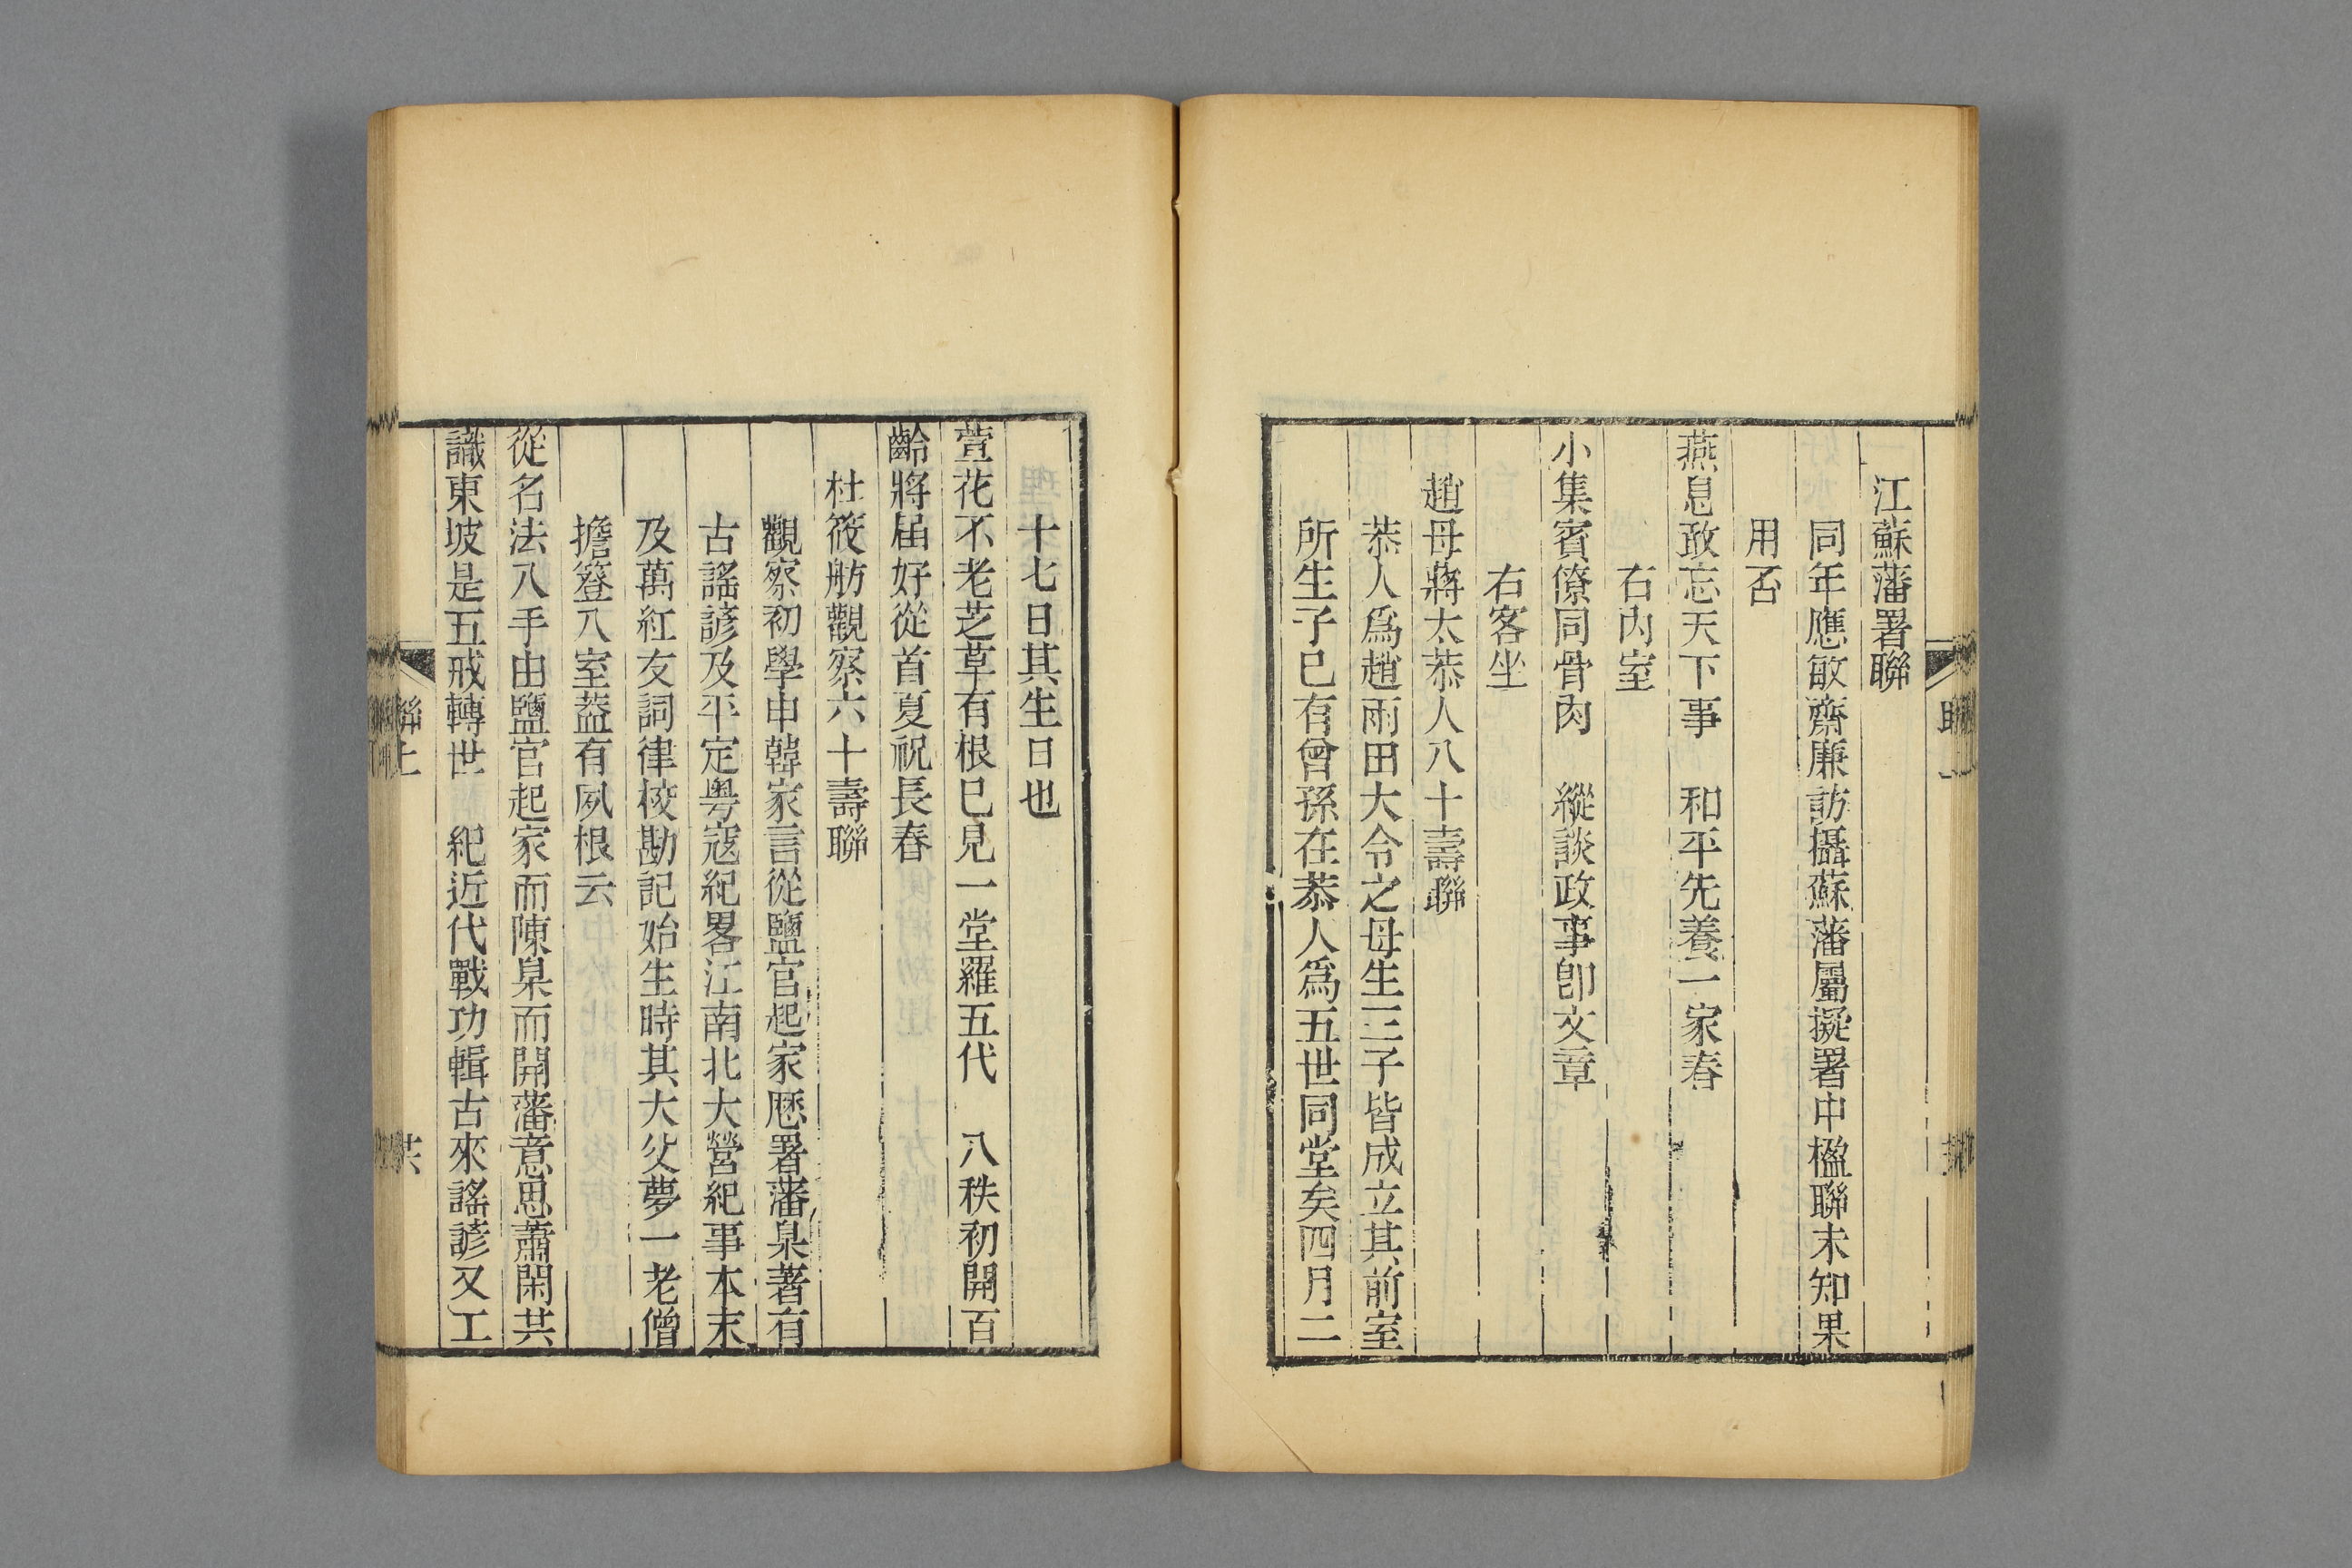 江蘇藩署聯
同年應敏齋廉訪攝蘇藩屬擬署中楹聯未知果
用否
燕息敢忘天下事　和平先養一家春
右內室
小集賓僚同骨肉　縱談政事卽文章
右客坐
趙母蔣太恭人八十壽聯
恭人爲趙雨田大令之母生三子皆成立其前室
所生子已有曾孫在恭人爲五世同堂矣四月二
十七日其生日也
萱花不老芝草有根已見一堂羅五代　八秩初開百
齡將屆好從首夏祝長春
杜筱舫觀察六十壽聯
觀察初學申韓家言從鹽官起家歷署藩臬著有
古謠諺及平定粵寇紀畧江南北大營紀事本末
及萬紅友詞律校勘記始生時其大父夢一老僧
擔簦入室葢有夙根云
從名法入手由鹽官起家而陳臬而開藩意思蕭閑共
識東坡是五戒轉世　紀近代戰功輯古來謠諺又工
聯上